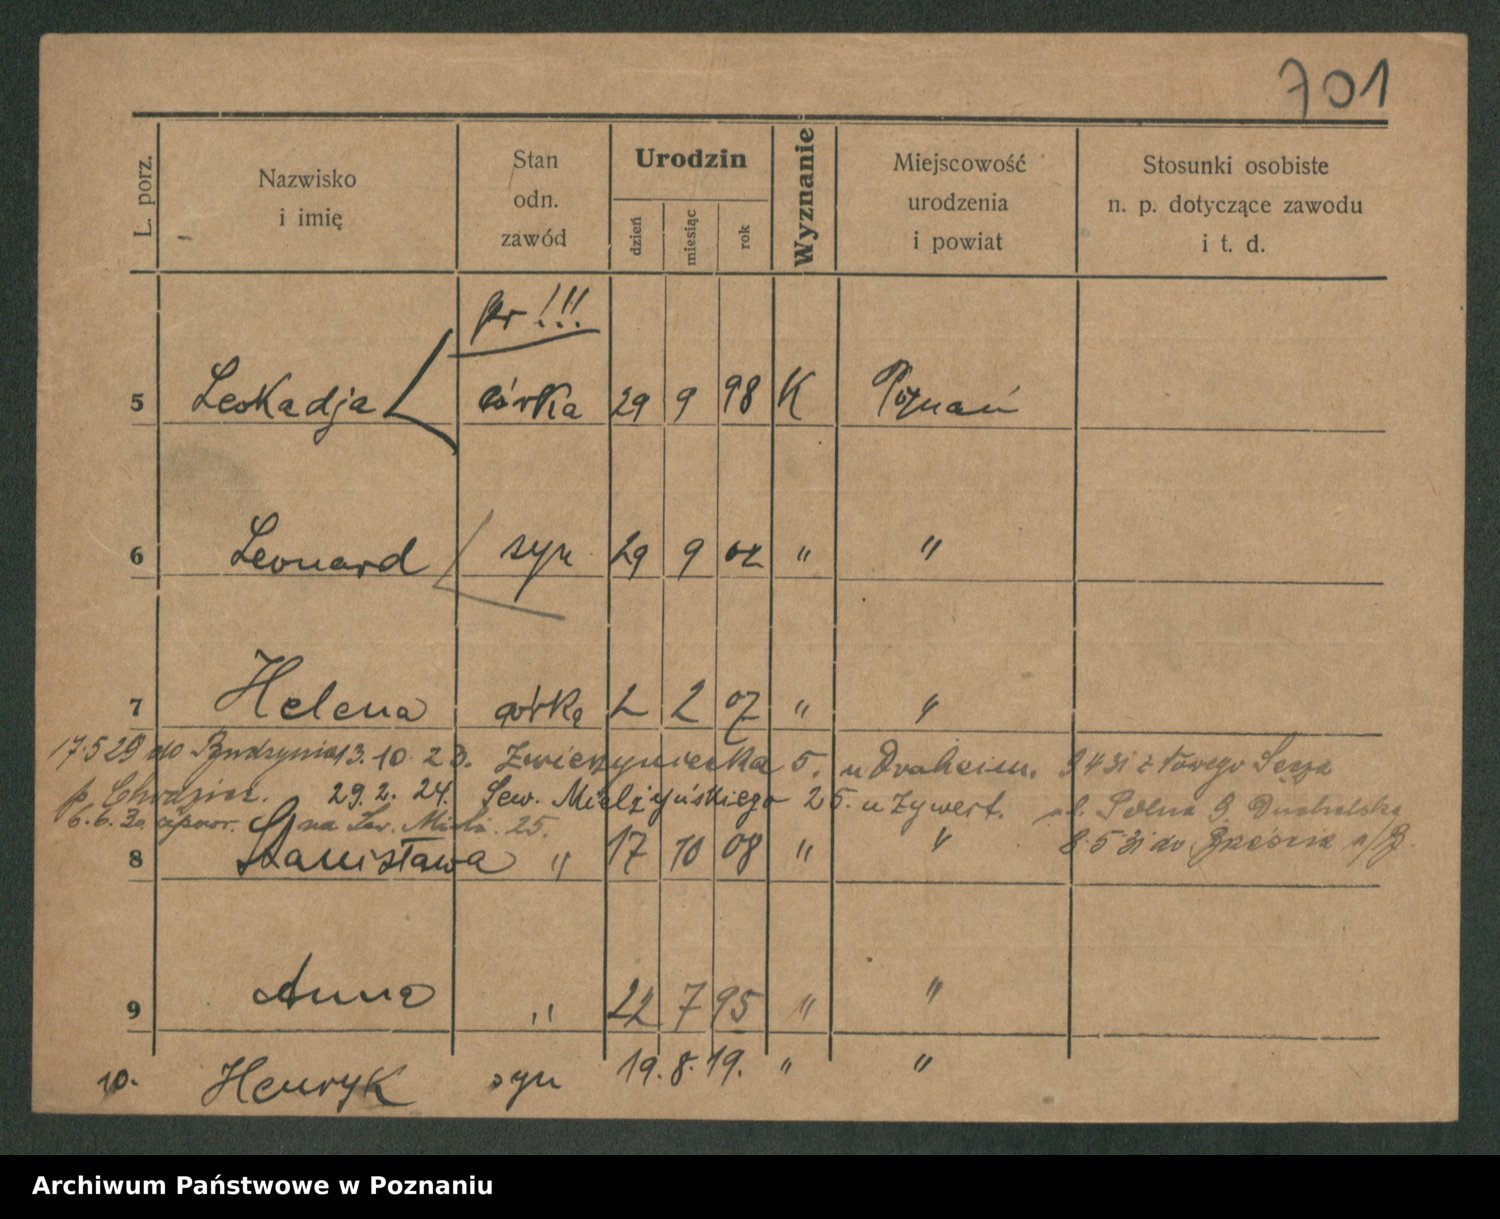 701
L. porz.
Nazwisko
i imię
Stan
odn.
zawód
Urodzin
dzień
miesiąc
rok
Wyznanie
Miejscowość
urodzenia
i powiat
Stosunki osobiste
n. p. dotyczące zawodu
i t. d.
!!!
5 Leokadja córka 29 9 98 K Poznań
6 Leonard syn 29 9 02 " "
7 Helena córka 2 2 07 " "
17.5 29 do Budzynia 13.10.23. Zwierzyniecka 5. u Draheim.
p. Chodzież. 29.2.24. Sew. Mielżyńskiego 25. u Zywert. ul. Polna
6.6.30 na Sew. Miel. 25.
8.5 31 do
8 Stanisława " 17 10 08 " "
9 Anna " 22 7 95 " "
10. Henryk syn 19.8.19. " "
Archiwum Państwowe w Poznaniu